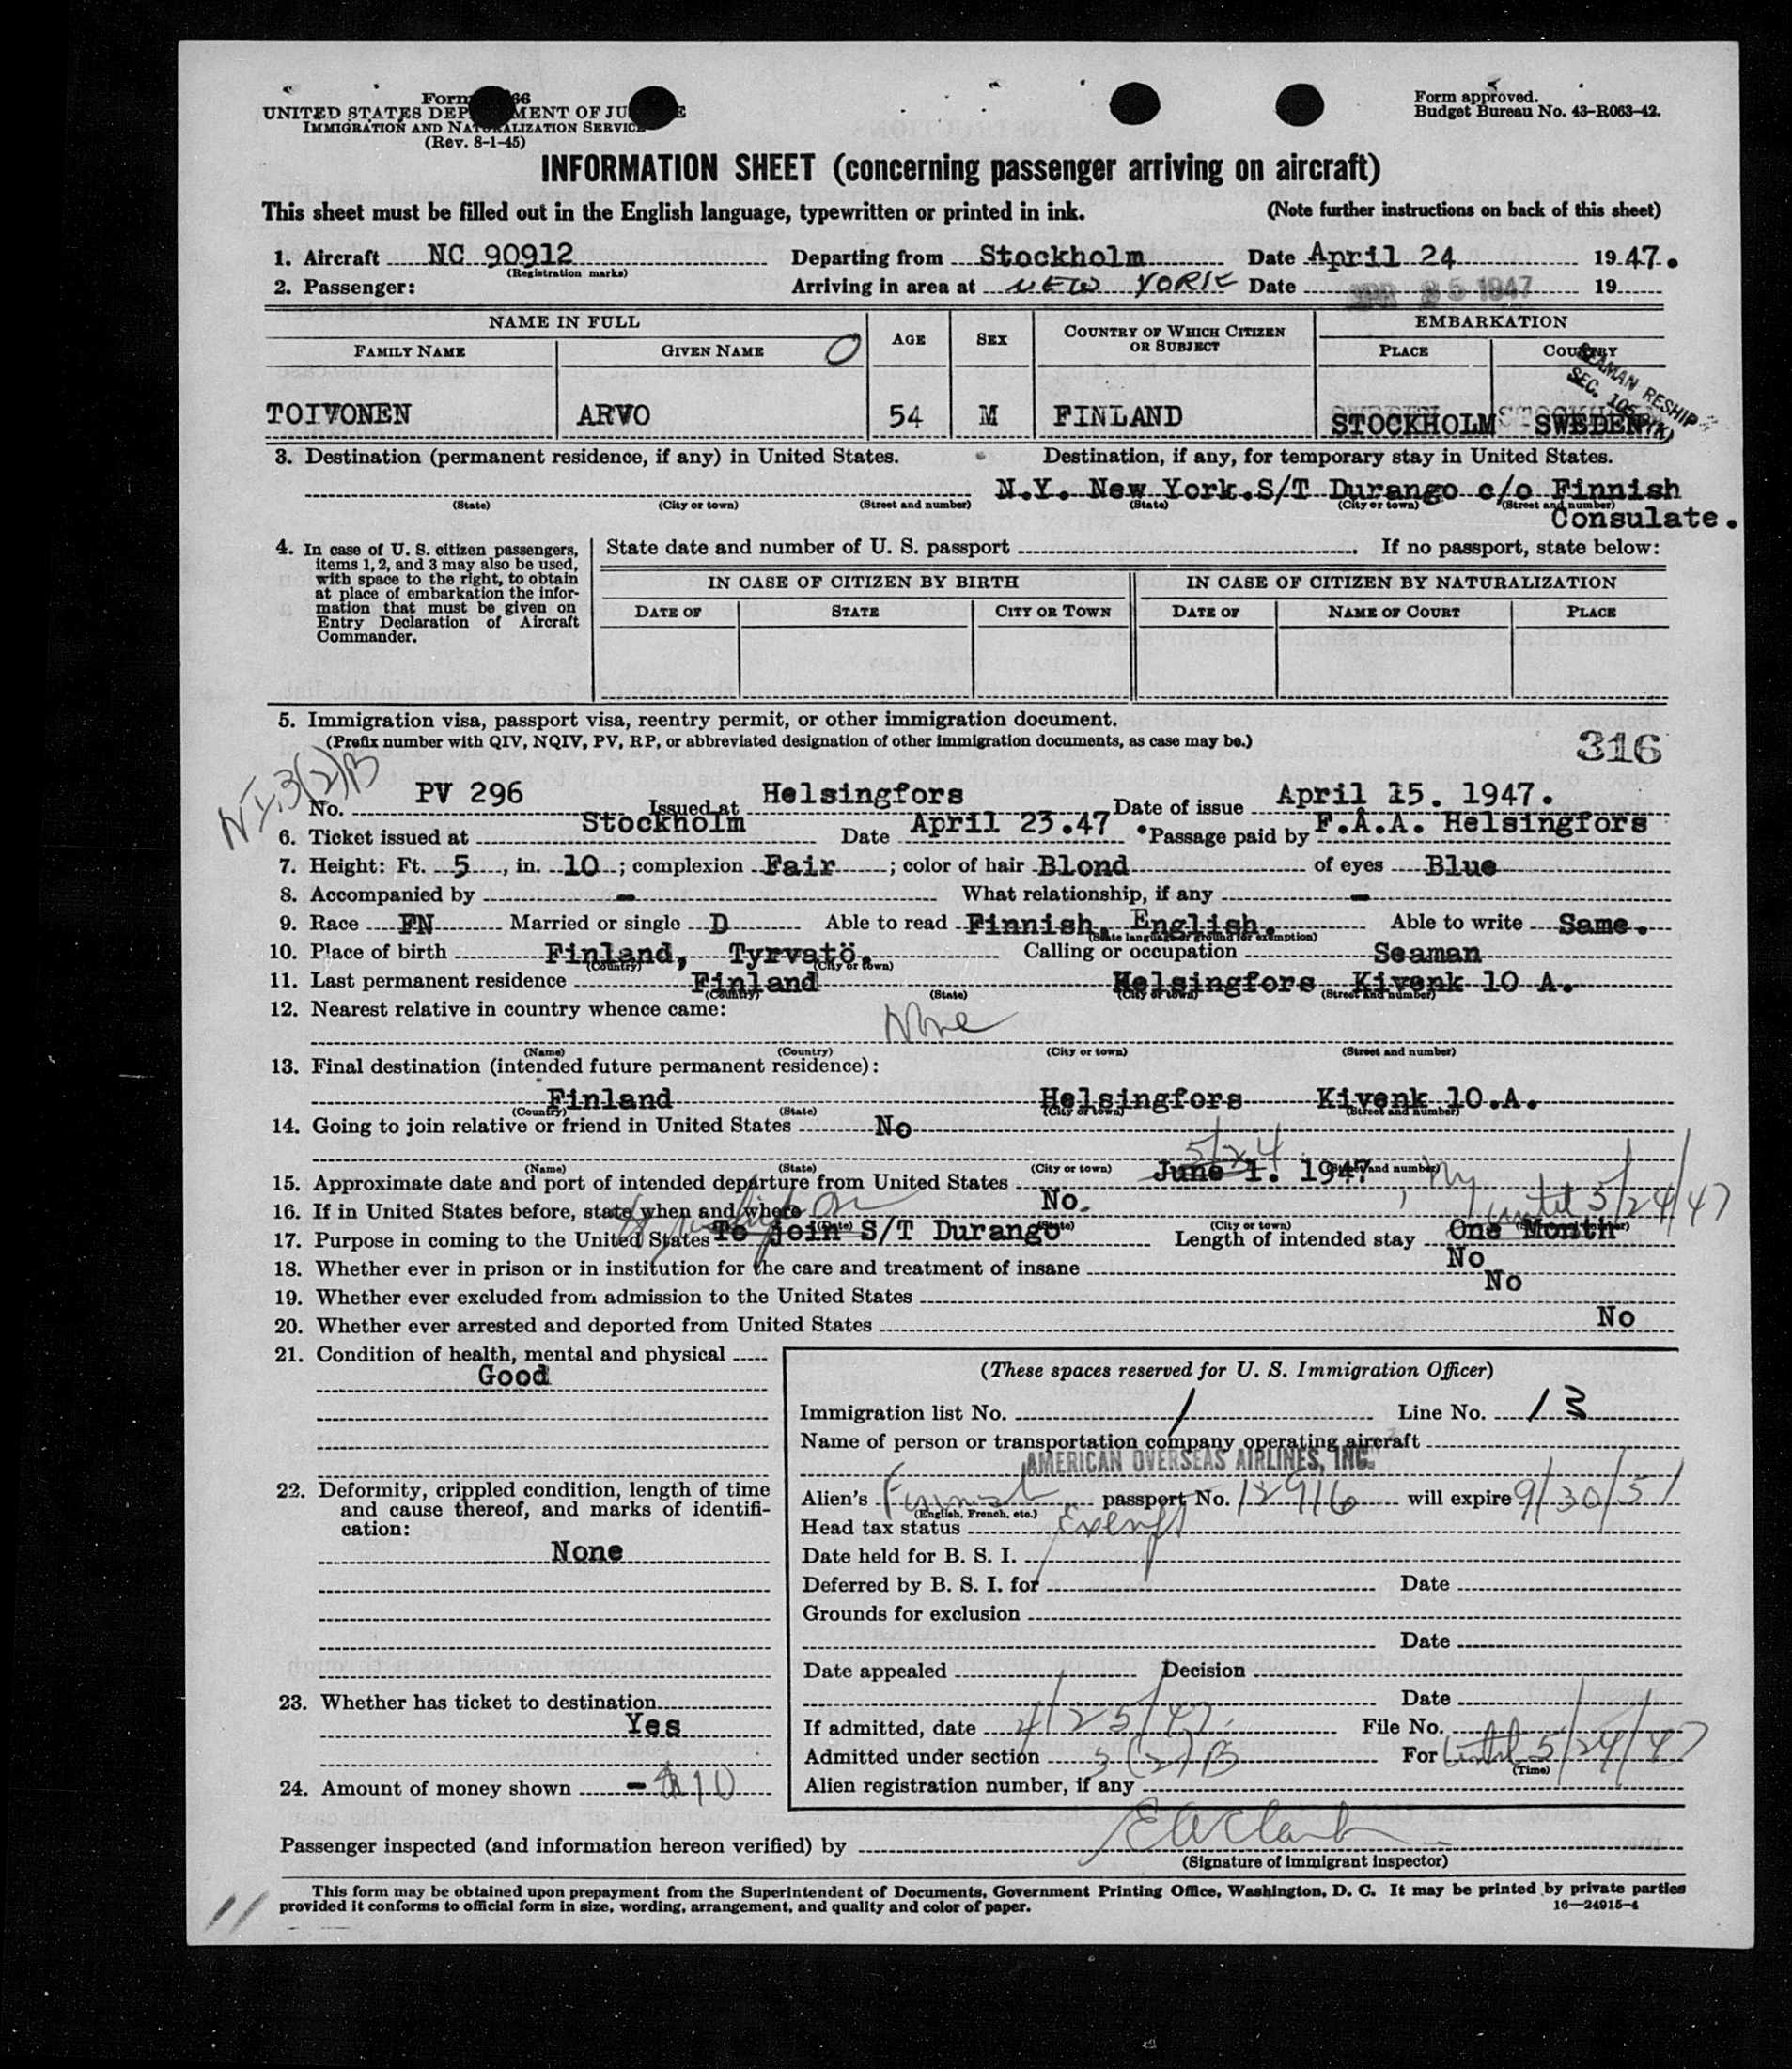 Form 66
UNITED STATES DEP MENT OF JU E
IMMIGRATION AND NATURALIZATION SERVICE
(Rev. 8-1-45)
Form approved.
Budget Bureau No. 43-R063-42.
INFORMATION SHEET (concerning passenger arriving on aircraft)
This sheet must be filled out in the English language, typewritten or printed in ink. (Note further instructions on back of this sheet)
1. Aircraft NC 90912 Departing from Stockholm Date April 24 1947.
(Registration marks)
2. Passenger: Arriving in area at NEW YORK Date APR 25 1947 19
NAME IN FULL AGE SEX COUNTRY OF WHICH CITIZEN OR SUBJECT EMBARKATION
FAMILY NAME GIVEN NAME PLACE COUNTRY
SEAMAN RESHIP
SEC. 105
TOIVONEN ARVO 54 M FINLAND STOCKHOLM SWEDEN
3. Destination (permanent residence, if any) in United States. Destination, if any, for temporary stay in United States.
N.Y. New York.S/T Durango c/o Finnish
(State) (City or town) (Street and number) (State) (City or town) (Street and number)
Consulate.
4. In case of U. S. citizen passengers, items 1, 2, and 3 may also be used, with space to the right, to obtain at place of embarkation the information that must be given on Entry Declaration of Aircraft Commander.
State date and number of U. S. passport . If no passport, state below:
IN CASE OF CITIZEN BY BIRTH IN CASE OF CITIZEN BY NATURALIZATION
DATE OF STATE CITY OR TOWN DATE OF NAME OF COURT PLACE
5. Immigration visa, passport visa, reentry permit, or other immigration document.
(Prefix number with QIV, NQIV, PV, RP, or abbreviated designation of other immigration documents, as case may be.)
316
3(2)B
No. PV 296 Issued at Helsingfors Date of issue April 15. 1947.
6. Ticket issued at Stockholm Date April 23.47 Passage paid by F.A.A. Helsingfors
7. Height: Ft. 5, in. 10; complexion Fair; color of hair Blond of eyes Blue
8. Accompanied by - What relationship, if any -
9. Race FN Married or single D Able to read Finnish, English. Able to write Same.
(State language or ground for exemption)
10. Place of birth Finland, Tyrvatö. Calling or occupation Seaman
(Country) (City or town)
11. Last permanent residence Finland Helsingfors Kivenk 10 A.
(Country) (State) (City or town) (Street and number)
12. Nearest relative in country whence came: None
(Name) (Country) (City or town) (Street and number)
13. Final destination (intended future permanent residence):
Finland Helsingfors Kivenk 10.A.
(Country) (State) (City or town) (Street and number)
14. Going to join relative or friend in United States No
5/24
(Name) (State) (City or town) (Street and number)
15. Approximate date and port of intended departure from United States June 1. 1947 Ny
until 5/24/47
16. If in United States before, state when and where No.
(Date) (State) (City or town) (Street and number)
17. Purpose in coming to the United States To join S/T Durango Length of intended stay One Month
18. Whether ever in prison or in institution for the care and treatment of insane No
19. Whether ever excluded from admission to the United States No
20. Whether ever arrested and deported from United States No
21. Condition of health, mental and physical
Good
22. Deformity, crippled condition, length of time and cause thereof, and marks of identification:
None
23. Whether has ticket to destination
Yes
24. Amount of money shown - $10
(These spaces reserved for U. S. Immigration Officer)
Immigration list No. 1 Line No. 13
Name of person or transportation company operating aircraft
AMERICAN OVERSEAS AIRLINES, INC.
Alien's Finnish passport No. 12916 will expire 9/30/51
(English, French, etc.)
Head tax status Exempt
Date held for B. S. I.
Deferred by B. S. I. for Date
Grounds for exclusion
Date
Date appealed Decision
Date
If admitted, date 4/25/47 File No.
Admitted under section 3(2)B For Until 5/24/47
(Time)
Alien registration number, if any
Passenger inspected (and information hereon verified) by EW Clark
(Signature of immigrant inspector)
This form may be obtained upon prepayment from the Superintendent of Documents, Government Printing Office, Washington, D. C. It may be printed by private parties
provided it conforms to official form in size, wording, arrangement, and quality and color of paper. 16—24915-4
11